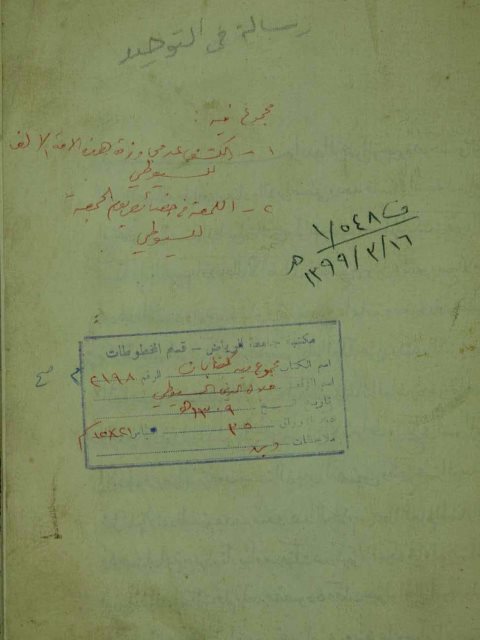 رسالة في التوحيد
مجموع فيه:
١ - الكشف عن مجاوزة هذه الامة الالف
للسيوطي
٢ - اللمعة في خصائص يوم الجمعة
للسيوطي
ف ١/٥٤٨
١٣٩٩/٣/١٦ هـ
مكتبة جامعة الرياض - قسم المخطوطات
اسم الكتاب مجموع فيه كتابان الرقم ٢١٩٨ م
اسم المؤلف جلال الدين السيوطي
تاريخ النسخ ١٣٠٩ هـ
عدد الأوراق ٣٥ قياس ٢١×١٥
ملاحظات